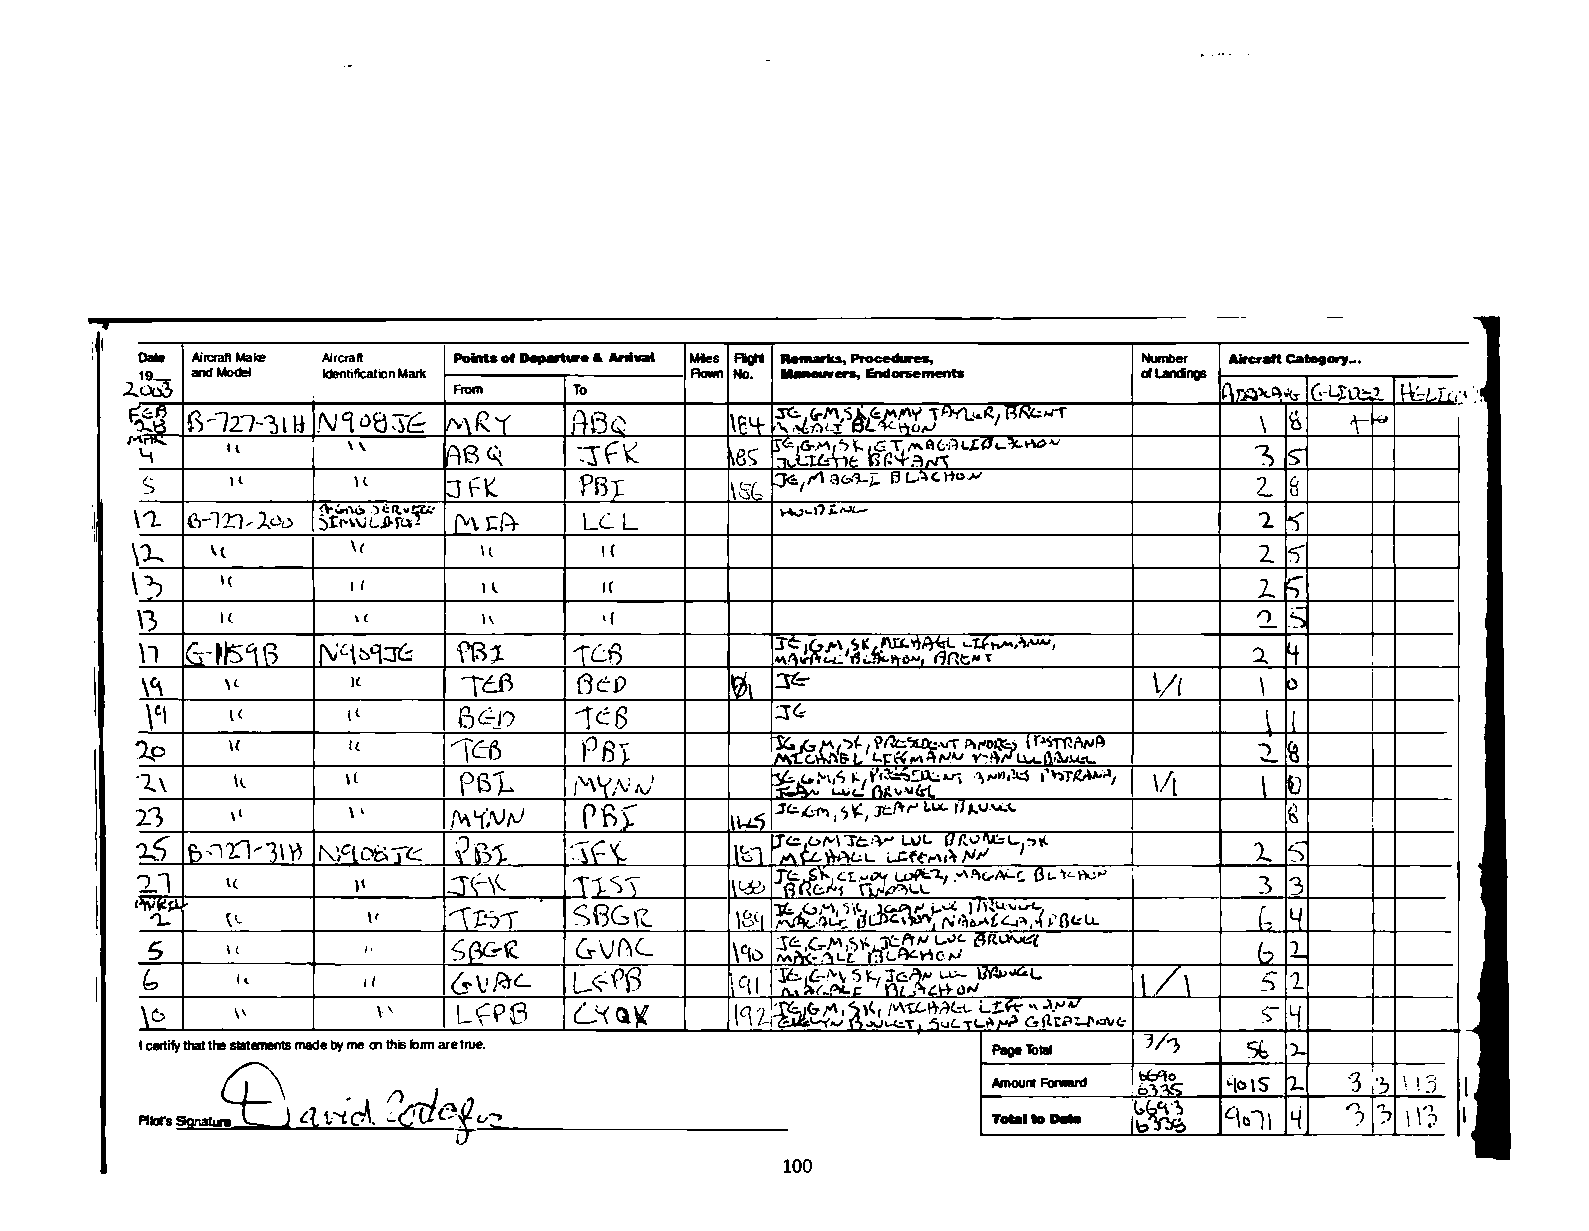 Date Aircraft Make Aircraft Points of Departure & Arrival Miles Flight Remarks, Procedures, Number Aircraft Category...
19 and Model Identification Mark Flown No. Maneuvers, Endorsements of Landings
2003 From To AIRPLANE GLIDER
FEB 28 B-727-31H N908JE MRY ABQ 184 JE, GM, SK, EMMY TAYLER, BRENT 1 8
BLACHON
MAR
4 " " ABQ JFK 185 JE, GM, SK, ET, MAGALE BLACHON 3 5
JULIETTE BRYANT
5 " " JFK PBI 186 JE, MAGALI BLACHON 2 8
12 B-727-200 SIMULATOR MIA LCL HOLDING 2 5
12 " " " " 2 5
13 " " " " 2 5
13 " " " " 2 5
17 G-1159B N909JE PBI TEB JE, GM, SK, MICHAEL LIFFMANN, 2 4
MAGALE BLACHON, BRENT
19 " " TEB BED JE 1/1 1 0
19 " " BED TEB JE 1 1
20 " " TEB PBI JE, GM, SK, PRESIDENT ANDRES PASTRANA 2 8
MICHAEL LIFFMANN JEAN LUC BRUNEL
21 " " PBI MYNN JE, GM, SK, PRESIDENT ANDRES PASTRANA, 1/1 1 0
JEAN LUC BRUNEL
23 " " MYNN PBI JE, GM, SK, JEAN LUC BRUNEL 8
25 B-727-31H N908JE PBI JFK 187 JE, GM JEAN LUC BRUNEL, SK 2 5
MICHAEL LIFFMANN
27 " " JFK TIST 188 JE, SK, CINDY LOPEZ, MAGALE BLACHON 3 3
BRENT TINDALL
APRIL
2 " " TIST SBGR 189 JE, GM, SK, JEAN LUC BRUNEL 6 4
MAGALE BLACHON,
5 " " SBGR GVAC 190 JE, GM, SK, JEAN LUC BRUNEL 6 2
MAGALE BLACHON
6 " " GVAC LFPB 191 JE, GM, SK, JEAN LUC BRUNEL 1/1 5 2
MAGALE BLACHON
10 " " LFPB CYQX 192 JE, GM, SK, MICHAEL LIFFMANN 5 4
I certify that the statements made by me on this form are true. Page Total 3/3 56 2
Amount Forward 6690 6335 9015 2 3 3 113 1
Pilot's Signature David Rodgers Total to Date 6693 6338 9071 4 3 3 113 1
100